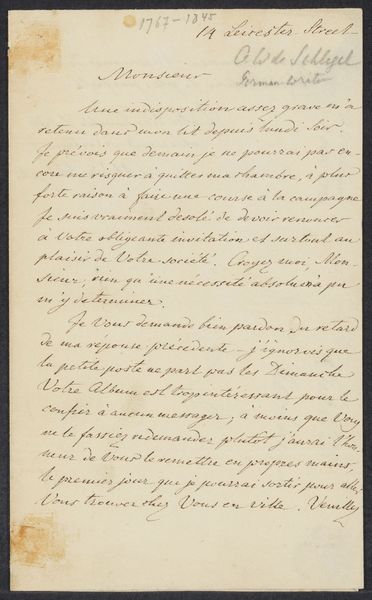 1767-1845
14 Leicester Street
A W de Schlegel
German writer
Monsieur
Une indisposition assez grave m'a
retenu dans mon lit depuis lundi soir.
Je prévois que demain je ne pourrai pas en-
core me risquer à quitter ma chambre, à plus
forte raison à faire une course à la campagne
Je suis vraiment désolé de devoir renoncer
à Votre obligeante invitation et surtout au
plaisir de Votre société. Croyez moi, Mon-
sieur, rien qu'une nécessité absolue a pu
m'y déterminer.
Je Vous demande bien pardon du retard
de ma réponse précédente – j'ignorois que
la petite poste ne part pas les Dimanche
Votre Album est trop intéressant pour le
confier à aucun messager; à moins que Vous
ne le fassiez redemander plutôt j'aurai l'hon-
neur de Vous le remettre en propres mains,
le premier jour que je pourrai sortir pour aller
Vous trouver chez Vous en ville. Veuillez